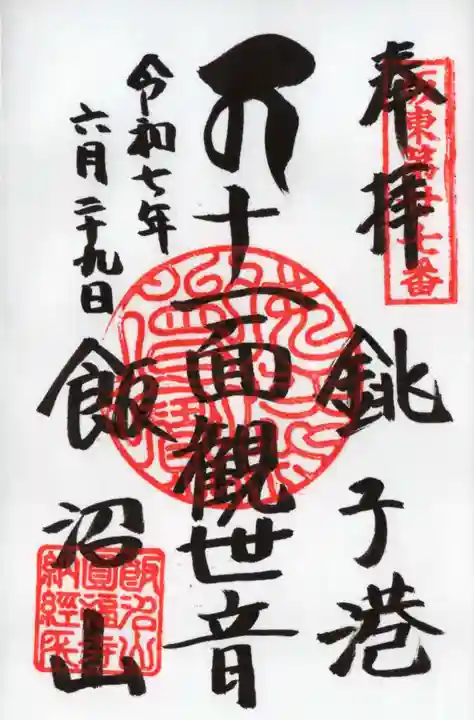 奉拝
銚子港
坂東第廿七番
十一面觀世音
令和七年
六月二十九日
飯沼山
飯沼山
圓福寺
納經所